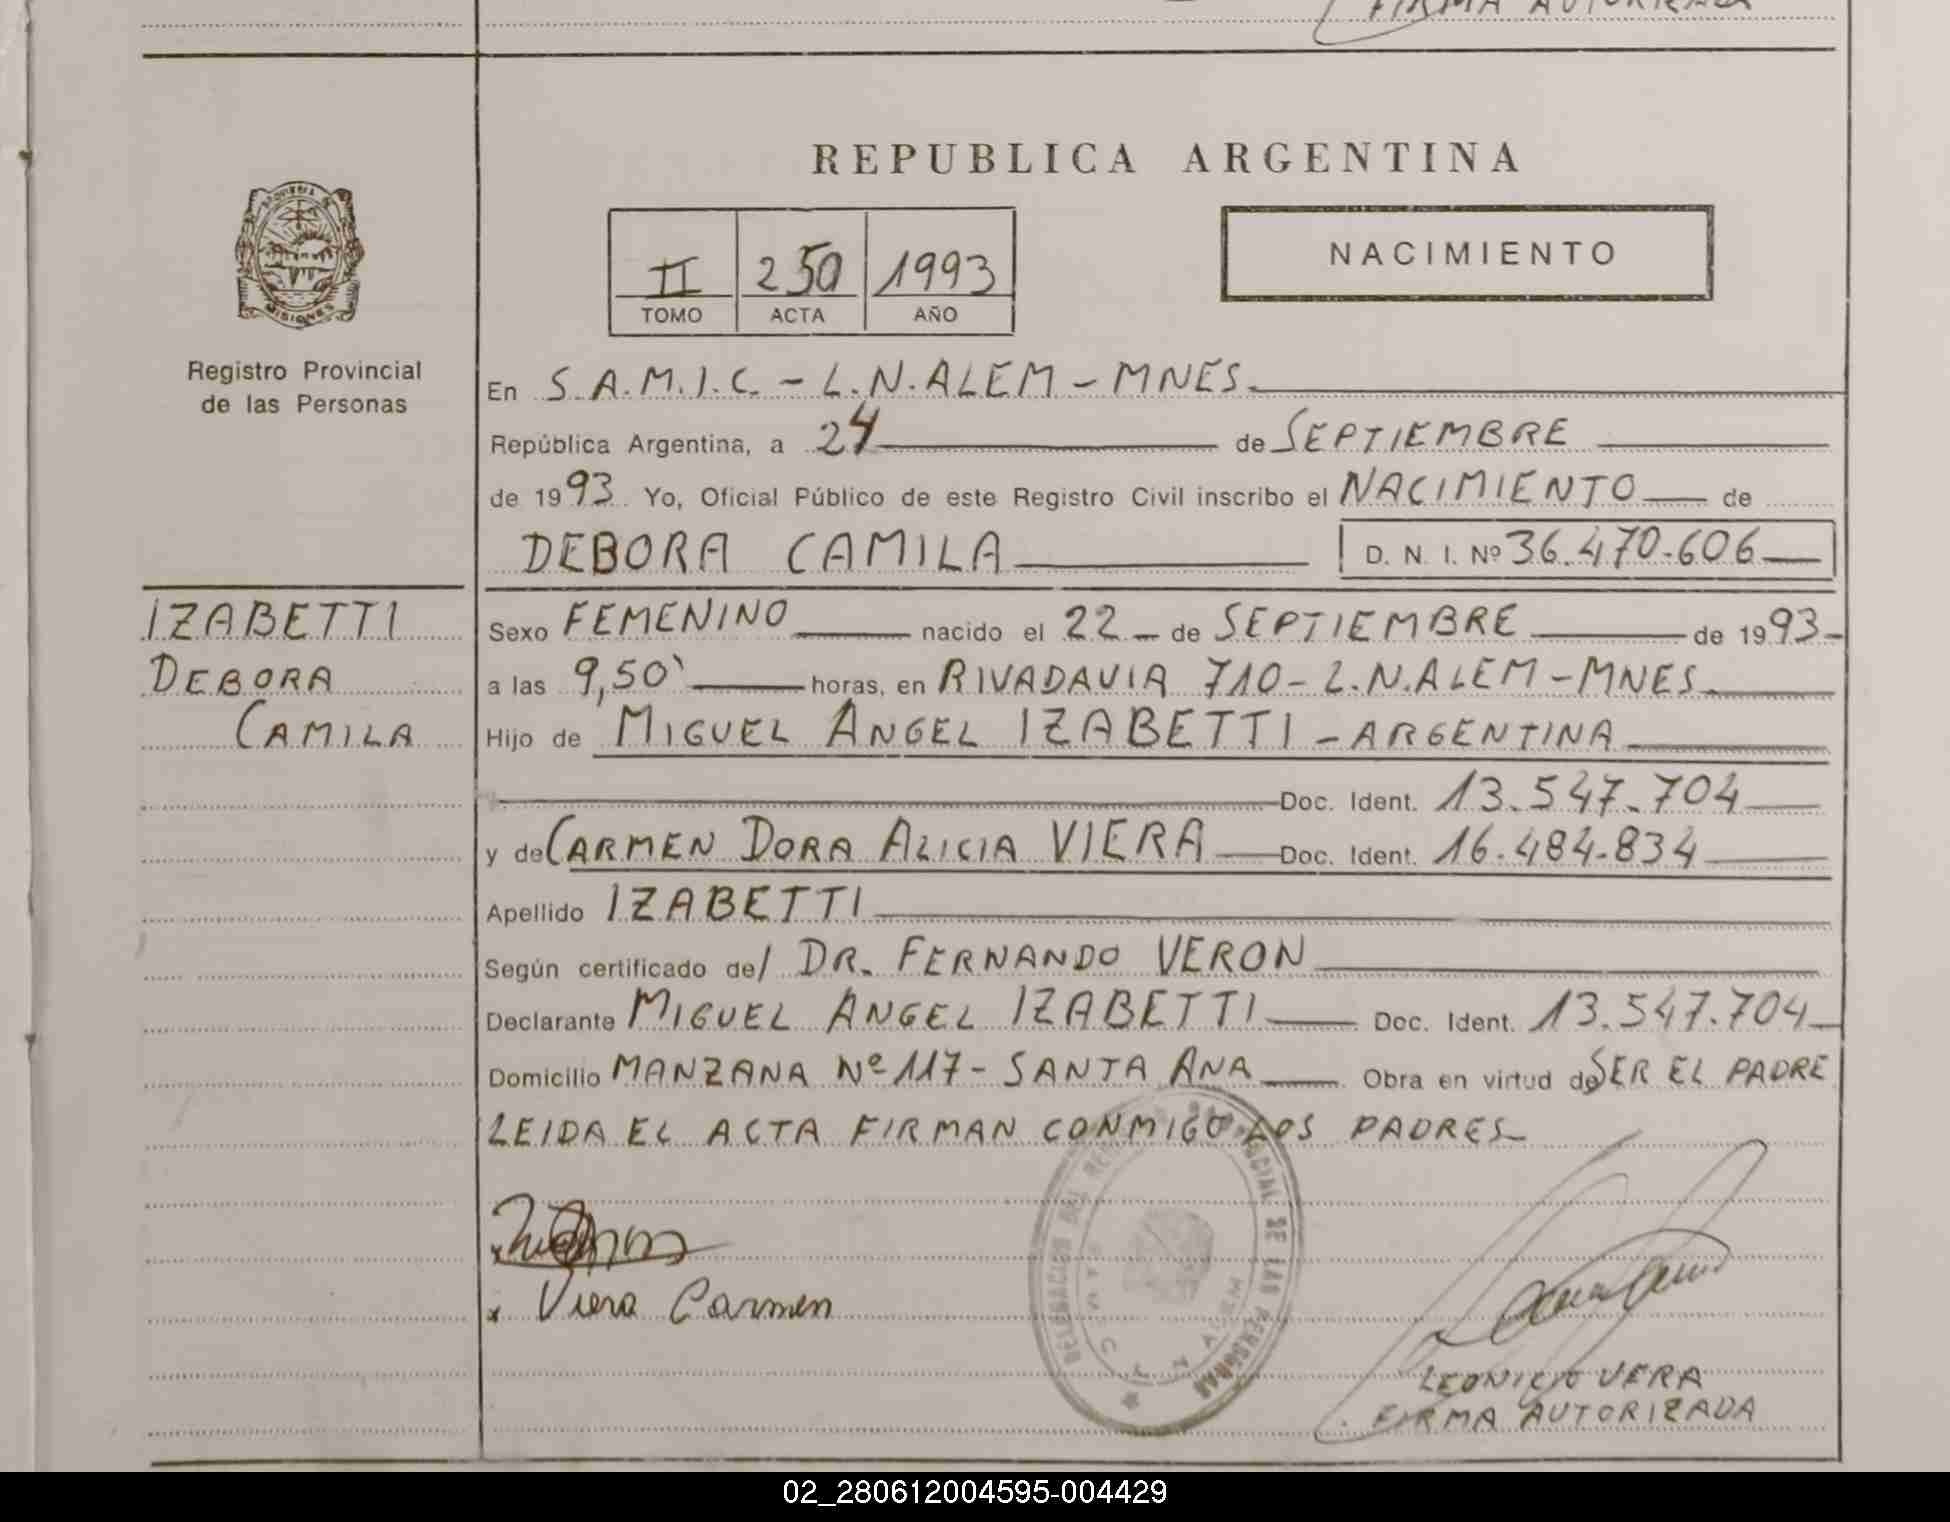 FIRMA AUTORIZADA
REPUBLICA ARGENTINA
NACIMIENTO
II 250 1993
TOMO ACTA AÑO
MISIONES
Registro Provincial
de las Personas
En S.A.M.I.C. - L.N.ALEM - MNES.
República Argentina, a 24 de SEPTIEMBRE
de 1993. Yo, Oficial Público de este Registro Civil inscribo el NACIMIENTO de
DEBORA CAMILA D. N. I. Nº 36.470.606
IZABETTI
DEBORA
CAMILA
Sexo FEMENINO nacido el 22 de SEPTIEMBRE de 1993
a las 9,50` horas, en RIVADAVIA 710 - L.N.ALEM - MNES.
Hijo de MIGUEL ANGEL IZABETTI - ARGENTINA
Doc. Ident. 13.547.704
y de CARMEN DORA ALICIA VIERA Doc. Ident. 16.484.834
Apellido IZABETTI
Según certificado de/ DR. FERNANDO VERON
Declarante MIGUEL ANGEL IZABETTI Doc. Ident. 13.547.704
Domicilio MANZANA Nº 117 - SANTA ANA Obra en virtud de SER EL PADRE
LEIDA EL ACTA FIRMAN CONMIGO LOS PADRES
x Viera Carmen
DELEGACION DEL DE LAS PERSONAS
N ALEM
LEONICIO VERA
FIRMA AUTORIZADA
02_280612004595-004429